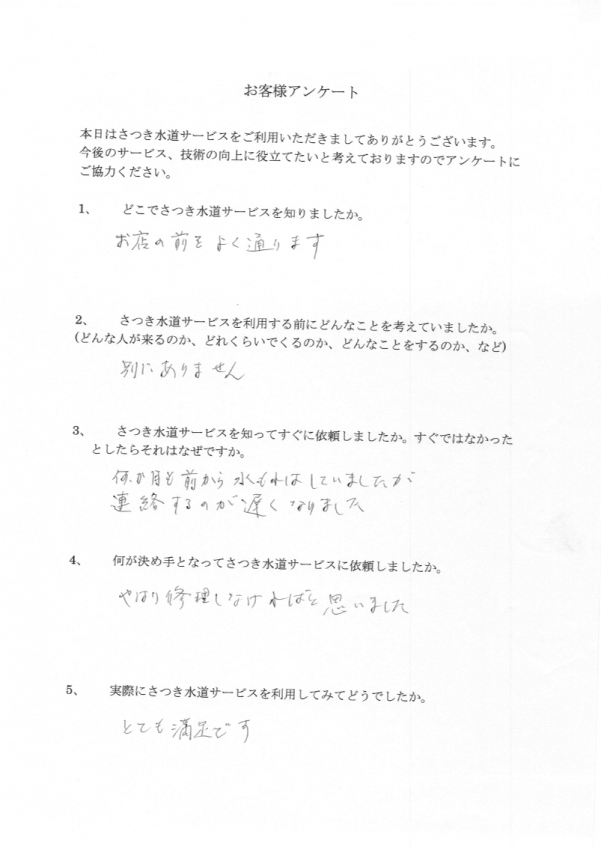 お客様アンケート
本日はさつき水道サービスをご利用いただきましてありがとうございます。
今後のサービス、技術の向上に役立てたいと考えておりますのでアンケートに
ご協力ください。
1、 どこでさつき水道サービスを知りましたか。
お店の前をよく通ります
2、 さつき水道サービスを利用する前にどんなことを考えていましたか。
(どんな人が来るのか、どれくらいでくるのか、どんなことをするのか、など)
別にありません
3、 さつき水道サービスを知ってすぐに依頼しましたか。すぐではなかった
としたらそれはなぜですか。
何か月も前から水もれはしていましたが
連絡するのが遅くなりました
4、 何が決め手となってさつき水道サービスに依頼しましたか。
やはり修理しなければと思いました
5、 実際にさつき水道サービスを利用してみてどうでしたか。
とても満足です